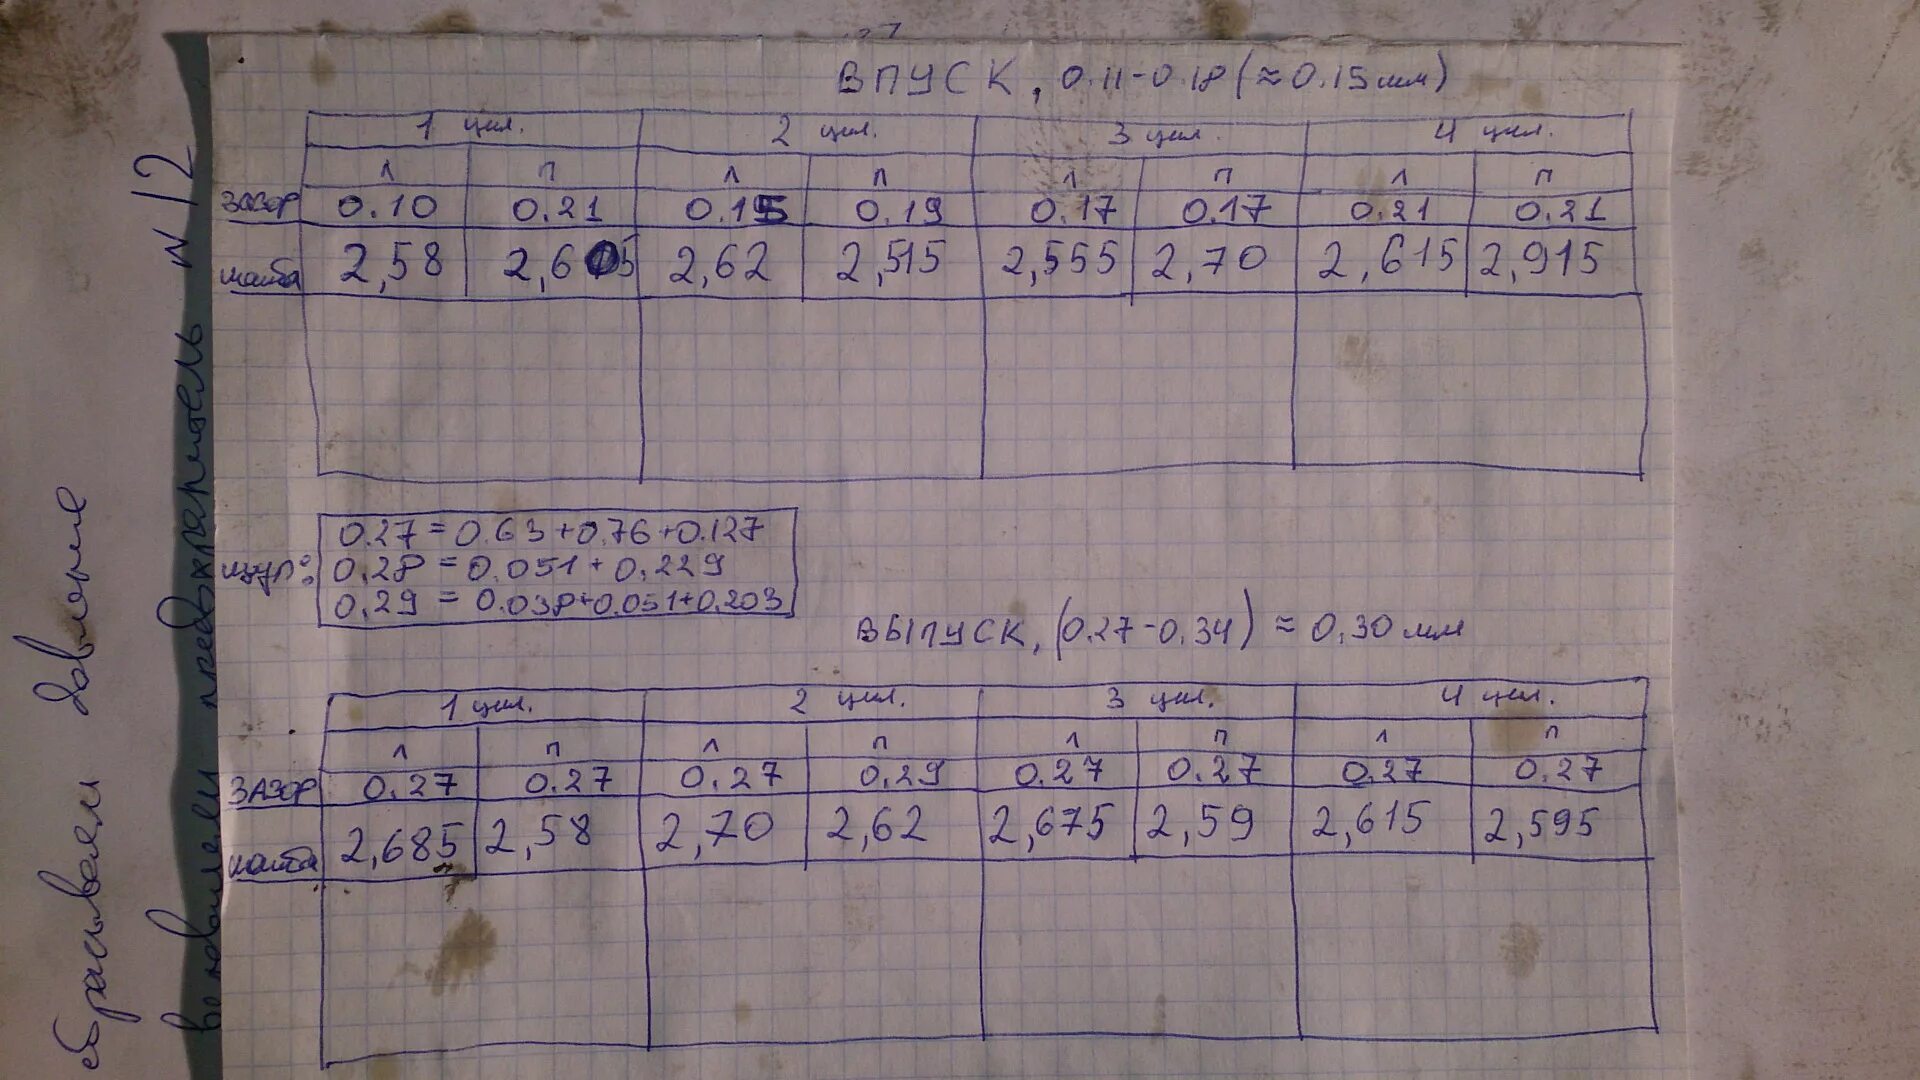 ВПУСК, 0.11-0.18 (≈0.15мм)
1 цил. 2 цил. 3 цил. 4 цил.
Л П Л П Л П Л П
зазор 0.10 0.21 0.15 0.19 0.17 0.17 0.21 0.21
шайба 2,58 2,605 2,62 2,515 2,555 2,70 2,615 2,915
щуп:
0.27 = 0.63+0.76+0.127
0.28 = 0.051+0.229
0.29 = 0.038+0.051+0.203
ВЫПУСК, (0.27-0.34) ≈ 0,30 мм
1 цил. 2 цил. 3 цил. 4 цил.
Л П Л П Л П Л П
ЗАЗОР 0.27 0.27 0.27 0.29 0.27 0.27 0.27 0.27
шайба 2,685 2,58 2,70 2,62 2,675 2,59 2,615 2,595
сбрасываем давление
вынимаем предохранитель N 12